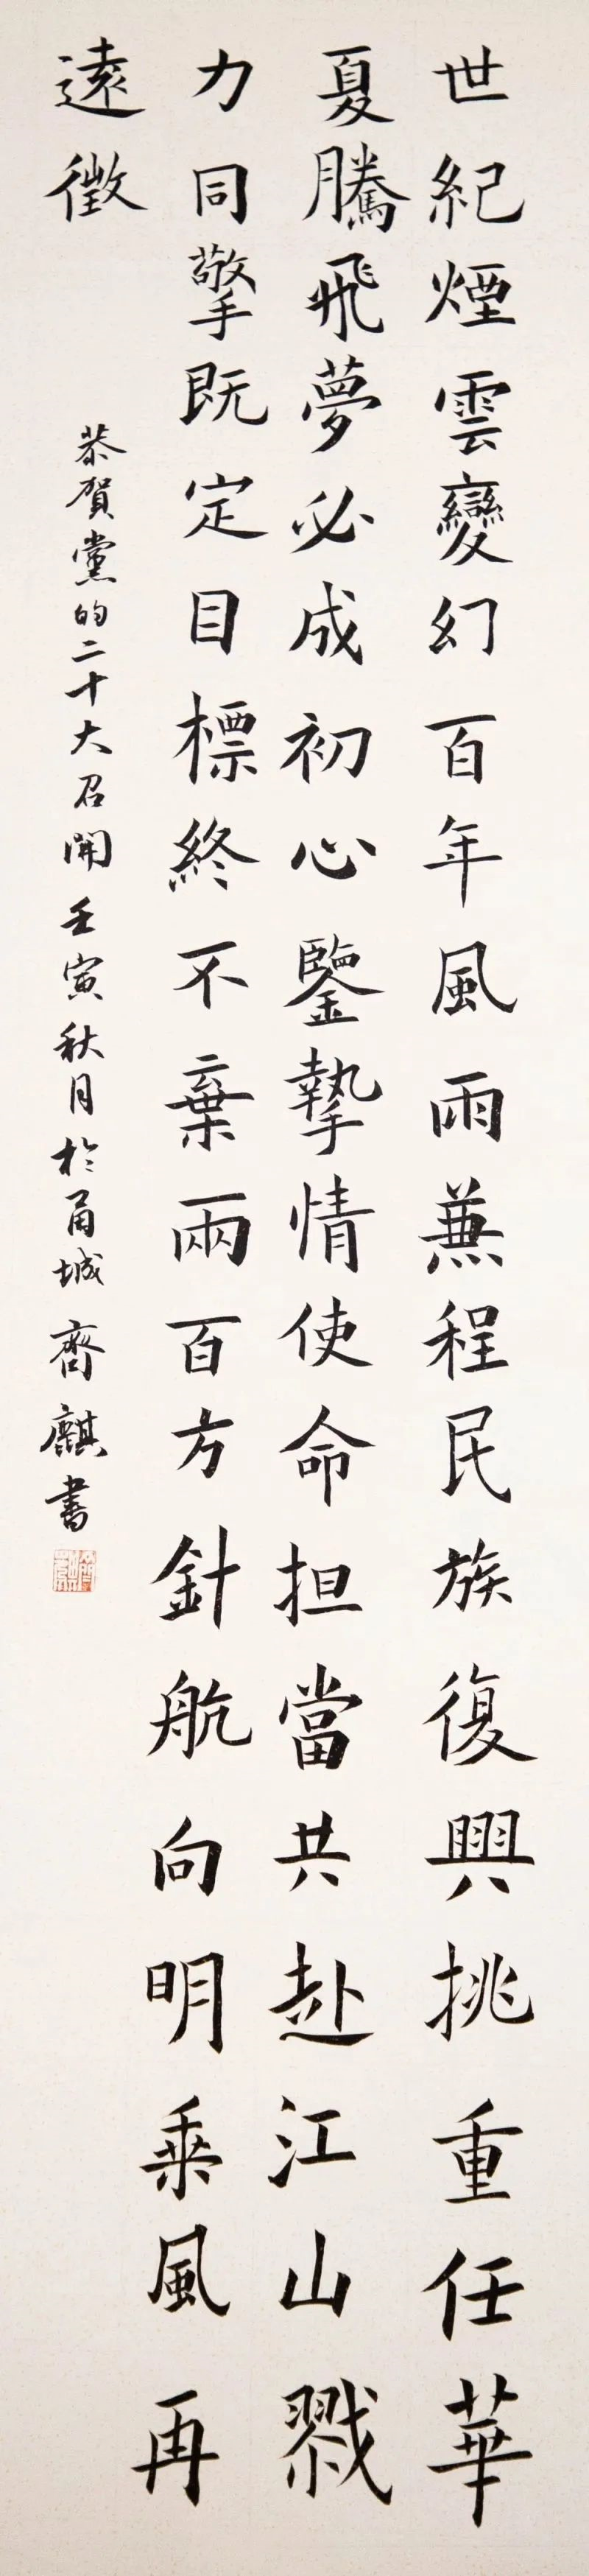 世紀煙雲變幻百年風雨兼程民族復興挑重任華
夏騰飛夢必成初心鑒摯情使命担當共赴江山戮
力同擎既定目標終不棄兩百方針航向明乘風再
遠徵
恭賀黨的二十大召開壬寅秋月於甬城齊麒書